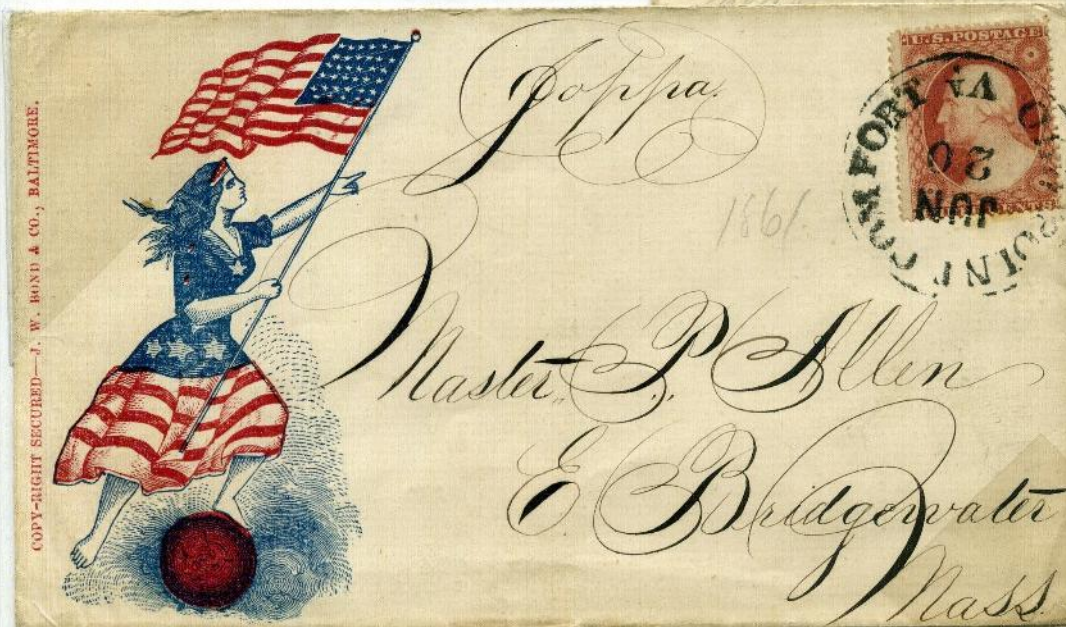 COPY-RIGHT SECURED—J. W. BOND & CO., BALTIMORE.
Joppa.
U.S. POSTAGE
COMFORT VA
20
JUN
1861.
Master. P. Allen
E. Bridgewater
Mass.